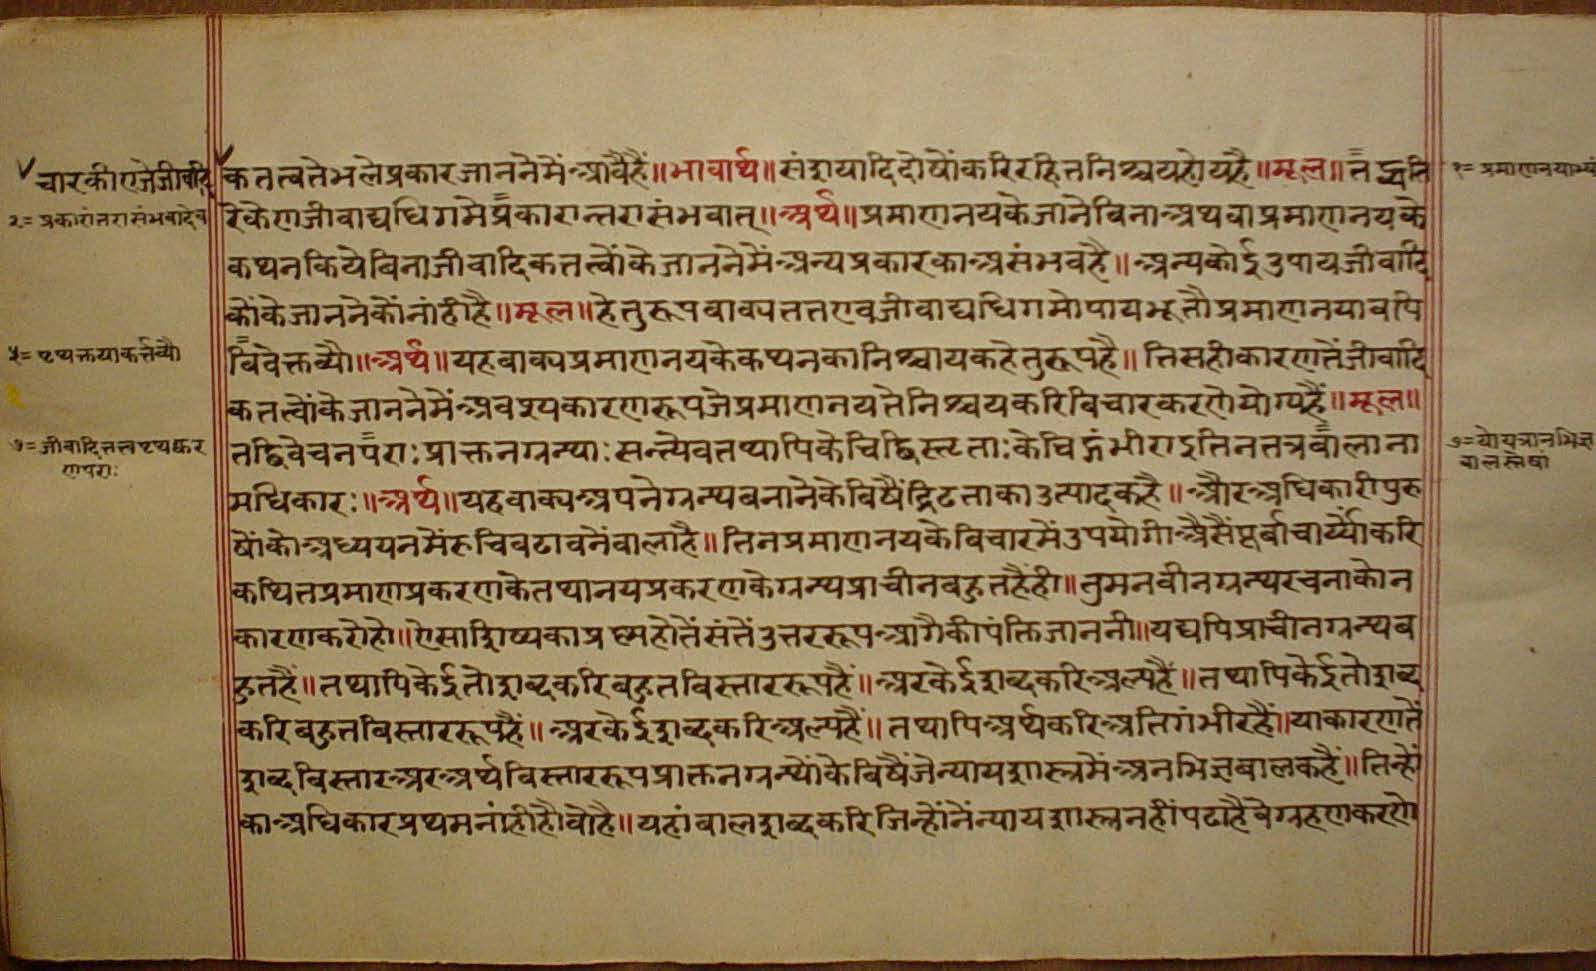 चारकीएजेजीवादि
२= प्रकारांतरासंभवादेव
५= पृथक्तयाकर्त्तव्यौ
७= जीवादितत्त्वपृथक्कर
णपराः
कतत्वतेभलेप्रकारजाननेमेंआवैहैं॥भावार्थ॥संशयादिदोषोंकरिरहितनिश्चयहोयहै॥मूल॥तद्व्यति
रेकेणजीवाद्यधिगमेप्रकारान्तरासंभवात्॥अर्थ॥प्रमाणनयकेजानेबिनाअथवाप्रमाणनयके
कथनकियेबिनाजीवादिकतत्त्वोंकेजाननेमेंअन्यप्रकारकाअसंभवहै॥अन्यकोईउपायजीवादि
कोंकेजाननेकोंनांहीहै॥मूल॥हेतुरूपवाक्यतत्तएवजीवाद्यधिगमोपायभूतौप्रमाणनयावपि
विवेक्तव्यौ॥अर्थ॥यहवाक्यप्रमाणनयकेकथनकानिश्चायकहेतुरूपहै॥तिसहीकारणतेंजीवादि
कतत्त्वोंकेजाननेमेंअवश्यकारणरूपजेप्रमाणनयतेनिश्चयकरिबिचारकरणेयोग्यहैं॥मूल॥
तद्विवेचनपराःप्राक्तनग्रन्थाःसन्त्येवतथापिकेचिद्विस्तृताःकेचिद्गंभीराइतिनतत्रबालाना
मधिकारः॥अर्थ॥यहवाक्यअपनेग्रन्थबनानेकेविषैंद्रिढताकाउत्पादकहै॥औरअधिकारीपुरु
षोंकोअध्ययनमेंरुचिबढावनेंवालाहै॥तिनप्रमाणनयकेविचारमेंउपयोगीअैसैंपूर्वाचार्य्योंकरि
कथितप्रमाणप्रकरणकेतथानयप्रकरणकेग्रन्थप्राचीनबहुतहैंही॥तुमनवीनग्रन्थरचनाकोन
कारणकरोहो॥ऐसाशिष्यकाप्रष्णहोतेंसंतेंउत्तररूपआगैकीपंक्तिजाननी॥यद्यपिप्राचीनग्रन्थब
हुतहैं॥तथापिकेईतोशब्दकरिबहुतविस्ताररूपहैं॥अरकेईशब्दकरिअल्पहैं॥तथापिकेईतोशब्द
करिबहुतविस्ताररूपहैं॥अरकेईशब्दकरिअल्पहैं॥तथापिअर्थकरिअतिगंभीरहैं॥याकारणतें
शब्दविस्तारअरअर्थविस्ताररूपप्राक्तनग्रन्थोंकेविषैंजेन्यायशास्त्रमेंअनभिज्ञबालकहैं॥तिन्हों
काअधिकारप्रथमनांहीहौवोहै॥यहांबालशब्दकरिजिन्होंनेंन्यायशास्त्रनहींपढाहैवेग्रहणकरणे
१= प्रमाणनयाभ्यां
७= योयत्रानभिज्ञ
बालस्तेषां